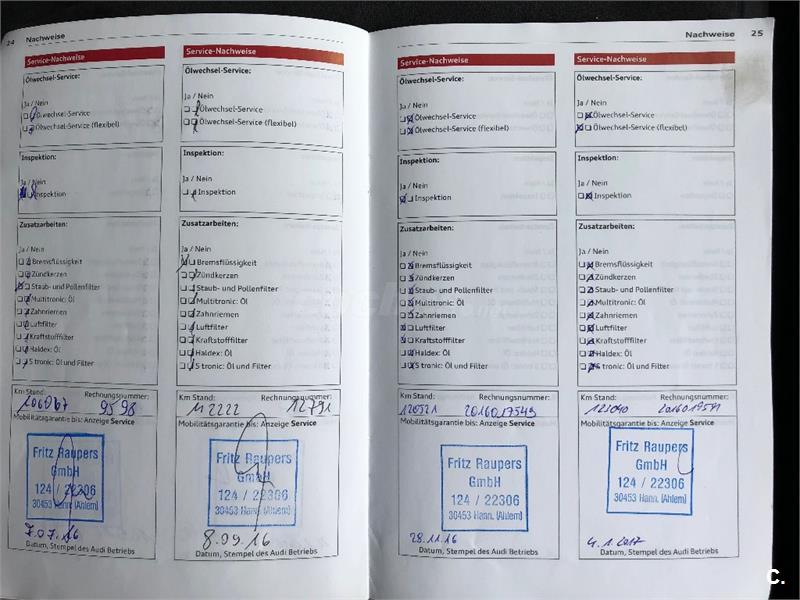 24 Nachweise
Service-Nachweise
Ölwechsel-Service:
Ja / Nein
Ölwechsel-Service
Ölwechsel-Service (flexibel)
Inspektion:
Ja / Nein
Inspektion
Zusatzarbeiten:
Ja / Nein
Bremsflüssigkeit
Zündkerzen
Staub- und Pollenfilter
Multitronic: Öl
Zahnriemen
Luftfilter
Kraftstofffilter
Haldex: Öl
S tronic: Öl und Filter
Km Stand: Rechnungsnummer:
9598
Mobilitätsgarantie bis: Anzeige Service
Fritz Raupers
GmbH
124 / 22306
30453 Hann. (Ahlem)
7.07.16
Datum, Stempel des Audi Betriebs
Service-Nachweise
Ölwechsel-Service:
Ja / Nein
Ölwechsel-Service
Ölwechsel-Service (flexibel)
Inspektion:
Ja / Nein
Inspektion
Zusatzarbeiten:
Ja / Nein
Bremsflüssigkeit
Zündkerzen
Staub- und Pollenfilter
Multitronic: Öl
Zahnriemen
Luftfilter
Kraftstofffilter
Haldex: Öl
S tronic: Öl und Filter
Km Stand: Rechnungsnummer:
112222 12791
Mobilitätsgarantie bis: Anzeige Service
Fritz Raupers
GmbH
124 / 22306
30453 Hann. (Ahlem)
8.09.16
Datum, Stempel des Audi Betriebs
Nachweise 25
Service-Nachweise
Ölwechsel-Service:
Ja / Nein
Ölwechsel-Service
Ölwechsel-Service (flexibel)
Inspektion:
Ja / Nein
Inspektion
Zusatzarbeiten:
Ja / Nein
Bremsflüssigkeit
Zündkerzen
Staub- und Pollenfilter
Multitronic: Öl
Zahnriemen
Luftfilter
Kraftstofffilter
Haldex: Öl
S tronic: Öl und Filter
Km Stand: Rechnungsnummer:
120521 2016017549
Mobilitätsgarantie bis: Anzeige Service
Fritz Raupers
GmbH
124 / 22306
30453 Hann. (Ahlem)
28.11.16
Datum, Stempel des Audi Betriebs
Service-Nachweise
Ölwechsel-Service:
Ja / Nein
Ölwechsel-Service
Ölwechsel-Service (flexibel)
Inspektion:
Ja / Nein
Inspektion
Zusatzarbeiten:
Ja / Nein
Bremsflüssigkeit
Zündkerzen
Staub- und Pollenfilter
Multitronic: Öl
Zahnriemen
Luftfilter
Kraftstofffilter
Haldex: Öl
S tronic: Öl und Filter
Km Stand: Rechnungsnummer:
Mobilitätsgarantie bis: Anzeige Service
Fritz Raupers
GmbH
124 / 22306
30453 Hann. (Ahlem)
4.1.2017
Datum, Stempel des Audi Betriebs
C.